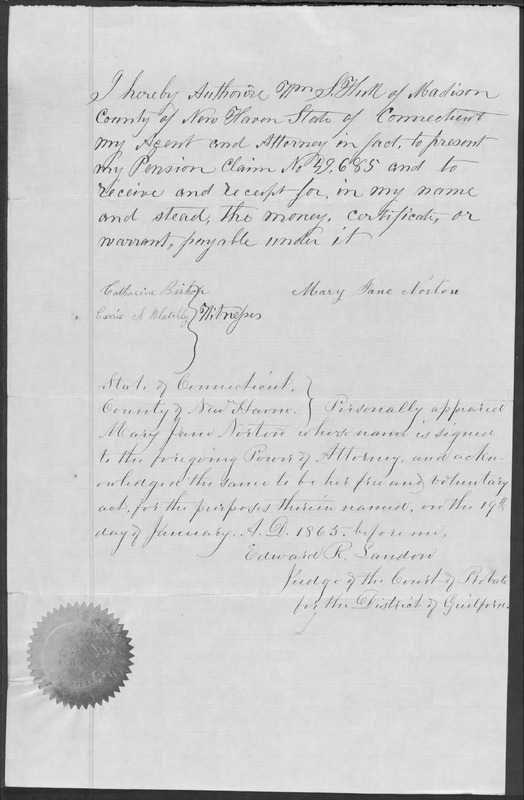 I hereby Authorize Wm S. Hull of Madison
County of New Haven State of Connecticut
my Agent and Attorney in fact, to present
my Pension Claim No 49,685 and to
receive and receipt for, in my name
and stead, the money, certificate, or
warrant, payable under it
Catharine Bishop Mary Jane Norton
Carrie A Blatchly } Witnesses
State of Connecticut,
County of New Haven. } Personally appeared
Mary Jane Norton whose name is signed
to the foregoing Power of Attorney, and ackn-
owledged the same to be her free and voluntary
act, for the purposes therein named, on the 19th
day of January. A.D. 1865. before me,
Edward R. Landon
Judge of the Court of Probate
for the District of Guilford.